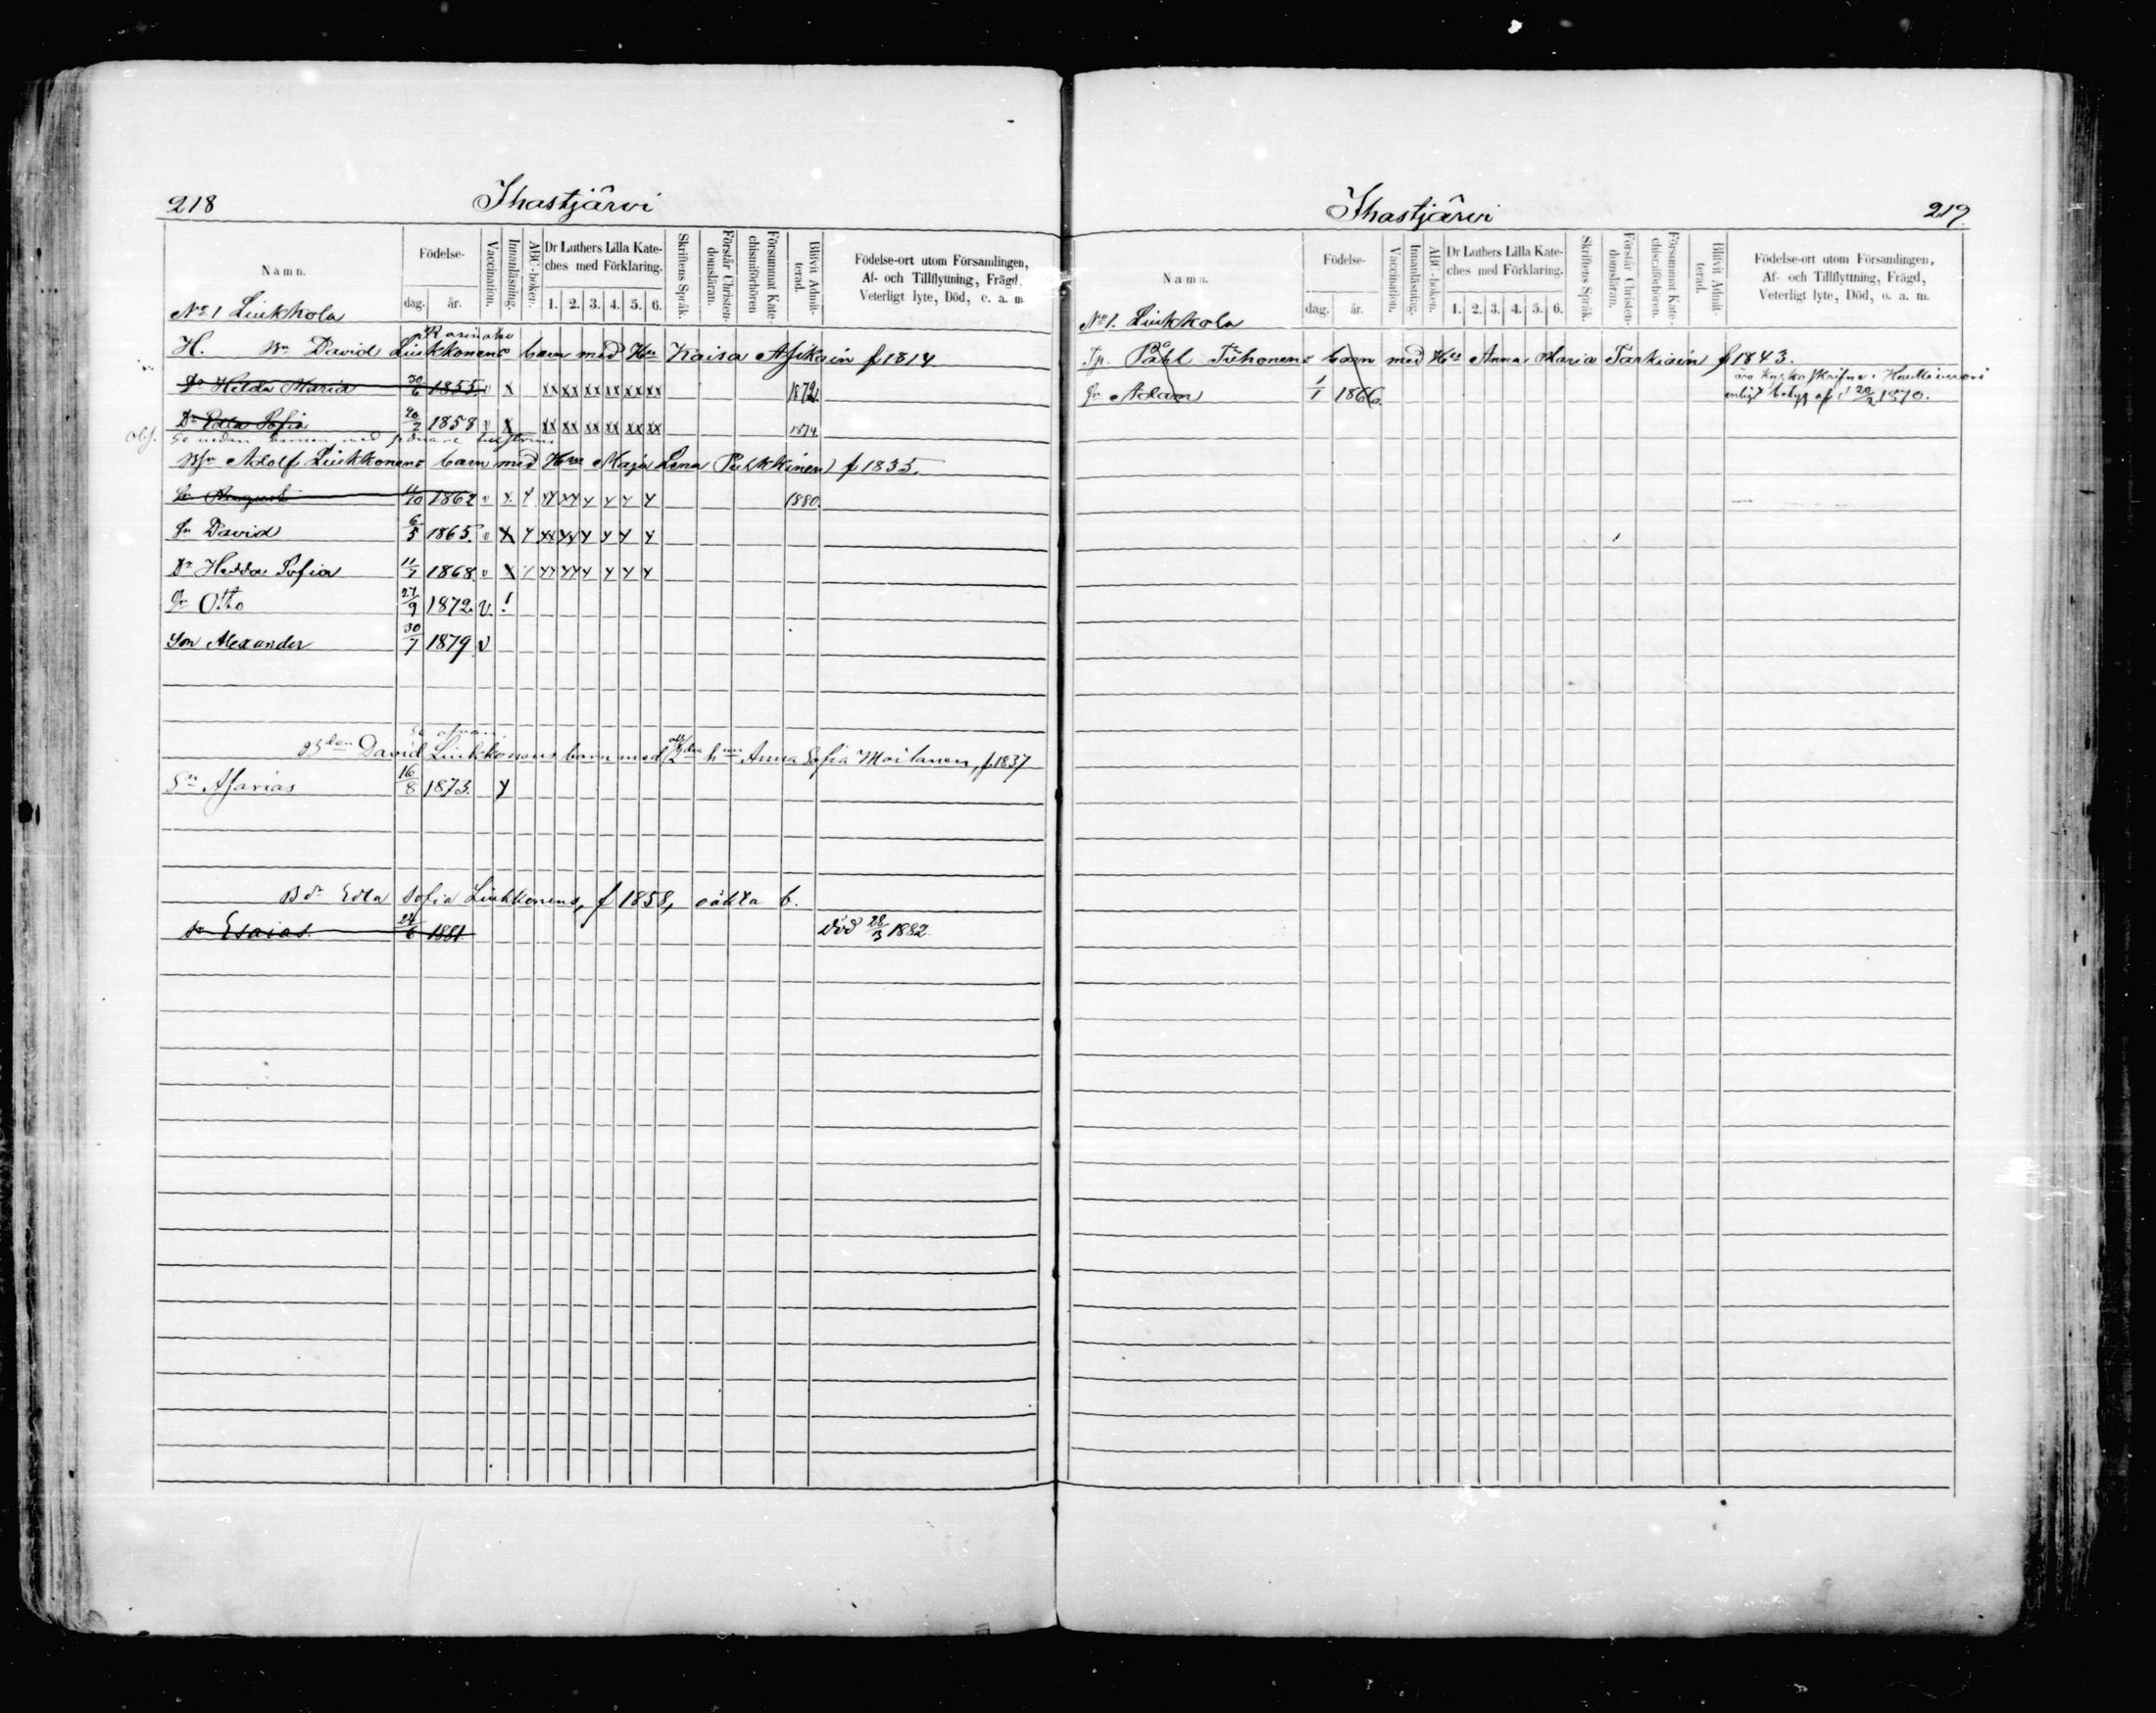 218
Ihastjärvi
Namn.
Födelse-
dag. år.
Vaccination.
Innanläsning.
ABC-boken.
Dr Luthers Lilla Kate-
ches med Förklaring.
1. 2. 3. 4. 5. 6.
Skriftens Språk.
Förstår Christen-
domsläran.
Försummat Kate-
chismiförhören
Blifvit Admit-
terad.
Födelse-ort utom Församlingen,
Af- och Tillflyttning, Frägd,
Veterligt lyte, Död, o. a. m.
No 1 Liukkola
H. Bn David Liukkonens barn med Hu Kaisa Asikain f 1814
Dr Helda Maria 30/6 1855 v x xx xx xx xx xx xx 1872.
Dr Edla Sofia 1858 v x xx xx xx xx xx xx 1874
Obs. Se nedan
Adolf Liukkonens barn med Hu Maja Lena Pulkkinen f 1835.
Sn August 11/10 1862 v x y yy yy y y y y 1880.
Sn David 6/5 1865. v x y xx yy y y y y
Dr Hedda Sofia 11/7 1868 v x y yy yy y y y y
Sn Otto 27/9 1872. v. !
Son Alexander 30/7 1879 v
Se ofvan
David Liukkonens barn med 2dra hun Anna Sofia Moilanen, f. 1837
Sn Asarias 16/8 1873. y
Bdr Edla Sofia Liukkonens, f 1858, oäkta b.
sn Esaias. 24/6 1881. död 28/3 1882.
Ihastjärvi
219.
Namn.
Födelse-
dag. år.
Vaccination.
Innanläsning.
ABC-boken.
Dr Luthers Lilla Kate-
ches med Förklaring.
1. 2. 3. 4. 5. 6.
Skriftens Språk.
Förstår Christen-
domsläran.
Försummat Kate-
chismiförhören.
Blifvit Admit-
terad.
Födelse-ort utom Församlingen,
Af- och Tillflyttning, Frägd,
Veterligt lyte, Död, o. a. m.
No 1. Liukkola
Påhl Tiihonens barn med Hu Anna Maria Tarkiain f 1843.
Sn Adam 1/1 1866.
äro kyrkoskrifne i
enligt betyg af d 20/2 1870.